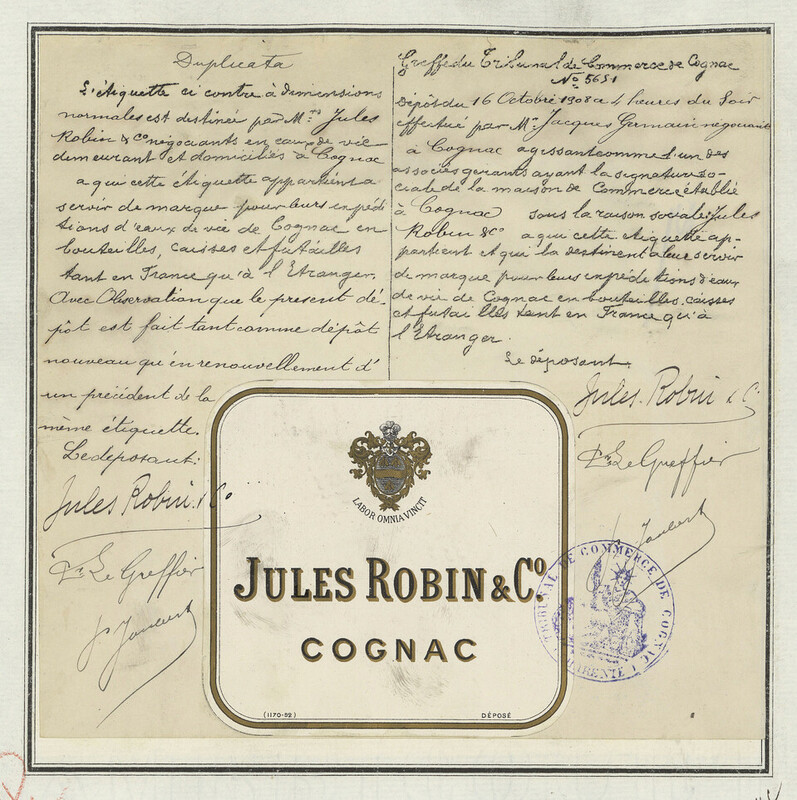 Duplicata
L'étiquette ci contre à dimensions
normales est destinée par Mrs Jules
Robin & Co négociants en eaux de vie
demeurant et domiciliés à Cognac
a qui cette étiquette appartient a
servir de marque pour leurs expédi
tions d'eaux de vie de Cognac en
bouteilles, caisses et futailles
tant en France qu'à l'Etranger.
Avec Observation que le present dé-
pôt est fait tant comme dépôt
nouveau qu'en renouvellement d'
un précédent de la
même étiquette.
Le déposant:
Jules Robin & Co
Pr Le Greffier
Joubert
Greffe du Tribunal de Commerce de Cognac
No 5651
Dépôt du 16 Octobre 1908 a 4 heures du Soir
effectué par Mr Jacques Germain négociant
à Cognac agissant comme l'un des
associés gerants ayant la signature so-
ciale de la maison de Commerce établie
à Cognac sous la raison sociale: Jules
Robin & Co a qui cette étiquette ap-
partient et qui la destinent a leur servir
de marque pour leurs expéditions d'eaux
de vie de Cognac en bouteilles, caisses
et futailles tant en France qu'à
l'Etranger.
Le déposant,
Jules Robin & Co
Pr Le Greffier
Joubert
LABOR OMNIA VINCIT
JULES ROBIN & Co.
COGNAC
(1170-92) DÉPOSÉ
TRIBUNAL DE COMMERCE DE COGNAC
CHARENTE